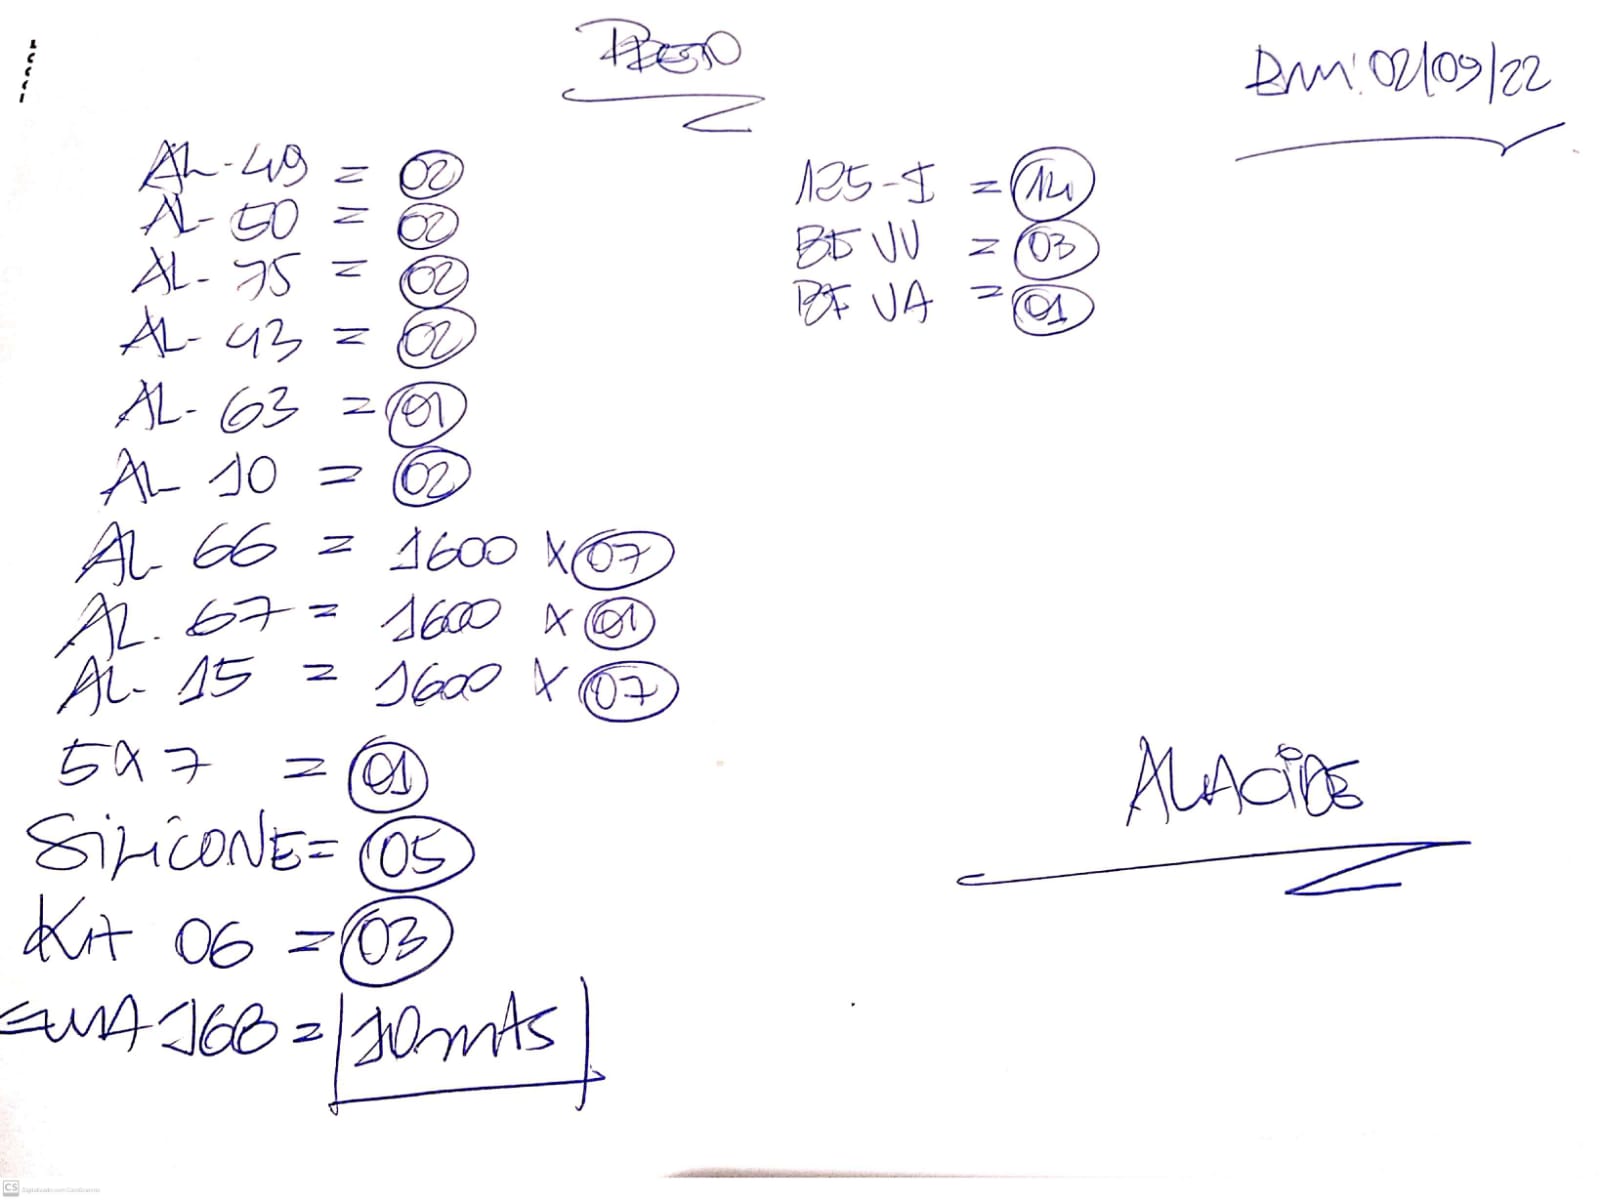 PRETO
DM: 02/09/22
AL-49 = 02
AL-50 = 02
AL-75 = 02
AL-43 = 02
AL-63 = 01
AL 10 = 02
AL 66 = 1600 X 07
AL. 67 = 1600 X 01
AL- 15 = 1600 X 07
5X7 = 01
SILICONE = 05
Kit 06 = 03
168 = 10 mts
125-I = 14
BF VV = 03
BF VA = 01
ALACIDE
CS Digitalizado com CamScanner